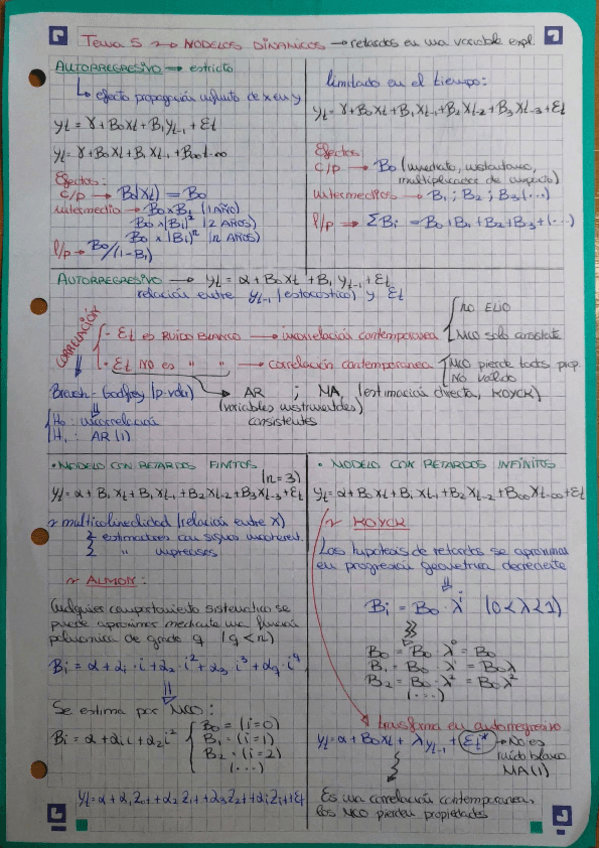 Tema 5 → MODELOS DINAMICOS → retardos en una variable expl.
AUTORREGRESIVO → estricto
↳ efecto propagación infinito de x en y
yt = γ + B0xt + B1yt-1 + Et
yt = γ + B0xt + B1xt-1 + B∞t-∞
Efectos:
c/p → B(xt) = B0
intermedio → B0 x B1 (1 AÑO)
B0 x (B1)² (2 AÑOS)
B0 x (B1)ⁿ (n AÑOS)
l/p → B0/(1-B1)
limitado en el tiempo:
yt = γ + B0xt + B1xt-1 + B2xt-2 + B3xt-3 + Et
Efectos
c/p → B0 (inmediato, instantaneo,
multiplicador de impacto)
intermedios → B1; B2; B3 (...)
l/p → ΣBi = B0 + B1 + B2 + B3 + (...)
AUTORREGRESIVO → yt = α + B0xt + B1 yt-1 + Et
relación entre yt-1 (estocástico) y Et
CORRELACIÓN
- Et es RUIDO BLANCO → incorrelación contemporanea
NO ELIO
MCO solo consistente
- Et NO es " " → correlación contemporanea
MCO pierde todas prop.
NO válido
Breush-Godfrey (p-valor)
H0: incorrelación
H1: AR(1)
→ AR ; MA (estimación directa, KOYCK)
(variables instrumentales)
consistentes
• MODELO CON RETARDOS FINITOS
(n=3)
yt = α + B1xt + B1xt-1 + B2xt-2 + B3xt-3 + Et
multicolinealidad (relación entre x)
estimadores con signos incoherent.
" imprecisos
ALMON:
Cualquier comportamiento sistematico se
puede aproximar mediante una función
polinomica de grado q (q<n)
Bi = α + α1·i + α2·i² + α3 i³ + αq·i^q
Se estima por MCO:
Bi = α + α1i + α2i²
B0 = (i=0)
B1 = (i=1)
B2 = (i=2)
(...)
yt = α + α1Z0t + α2Z1t + α3Z2t + αiZit + Et
• MODELO CON RETARDOS INFINITOS
yt = α + B0xt + B1xt-1 + B2xt-2 + B∞xt-∞ + Et
KOYCK
Las hipotesis de retardos se aproximan
en progresión geometrica decreciente
Bi = B0·λ^i (0<λ<1)
B0 = B0·λ⁰ = B0
B1 = B0·λ¹ = B0λ
B2 = B0·λ² = B0λ²
(...)
transforma en autorregresivo
yt = α + B0xt + λyt-1 + Et* → No es
ruido blanco
MA(1)
Es una correlación contemporanea,
los MCO pierden propiedades